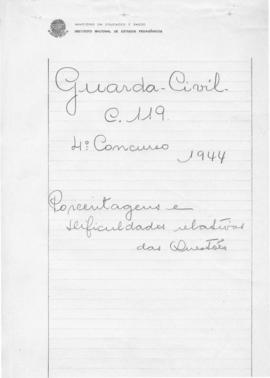 MINISTÉRIO DA EDUCAÇÃO E SAÚDE
INSTITUTO NACIONAL DE ESTUDOS PEDAGÓGICOS
Guarda-Civil.
C. 119.
4º Concurso
1944
Porcentagens e
dificuldades relativas
das Questões